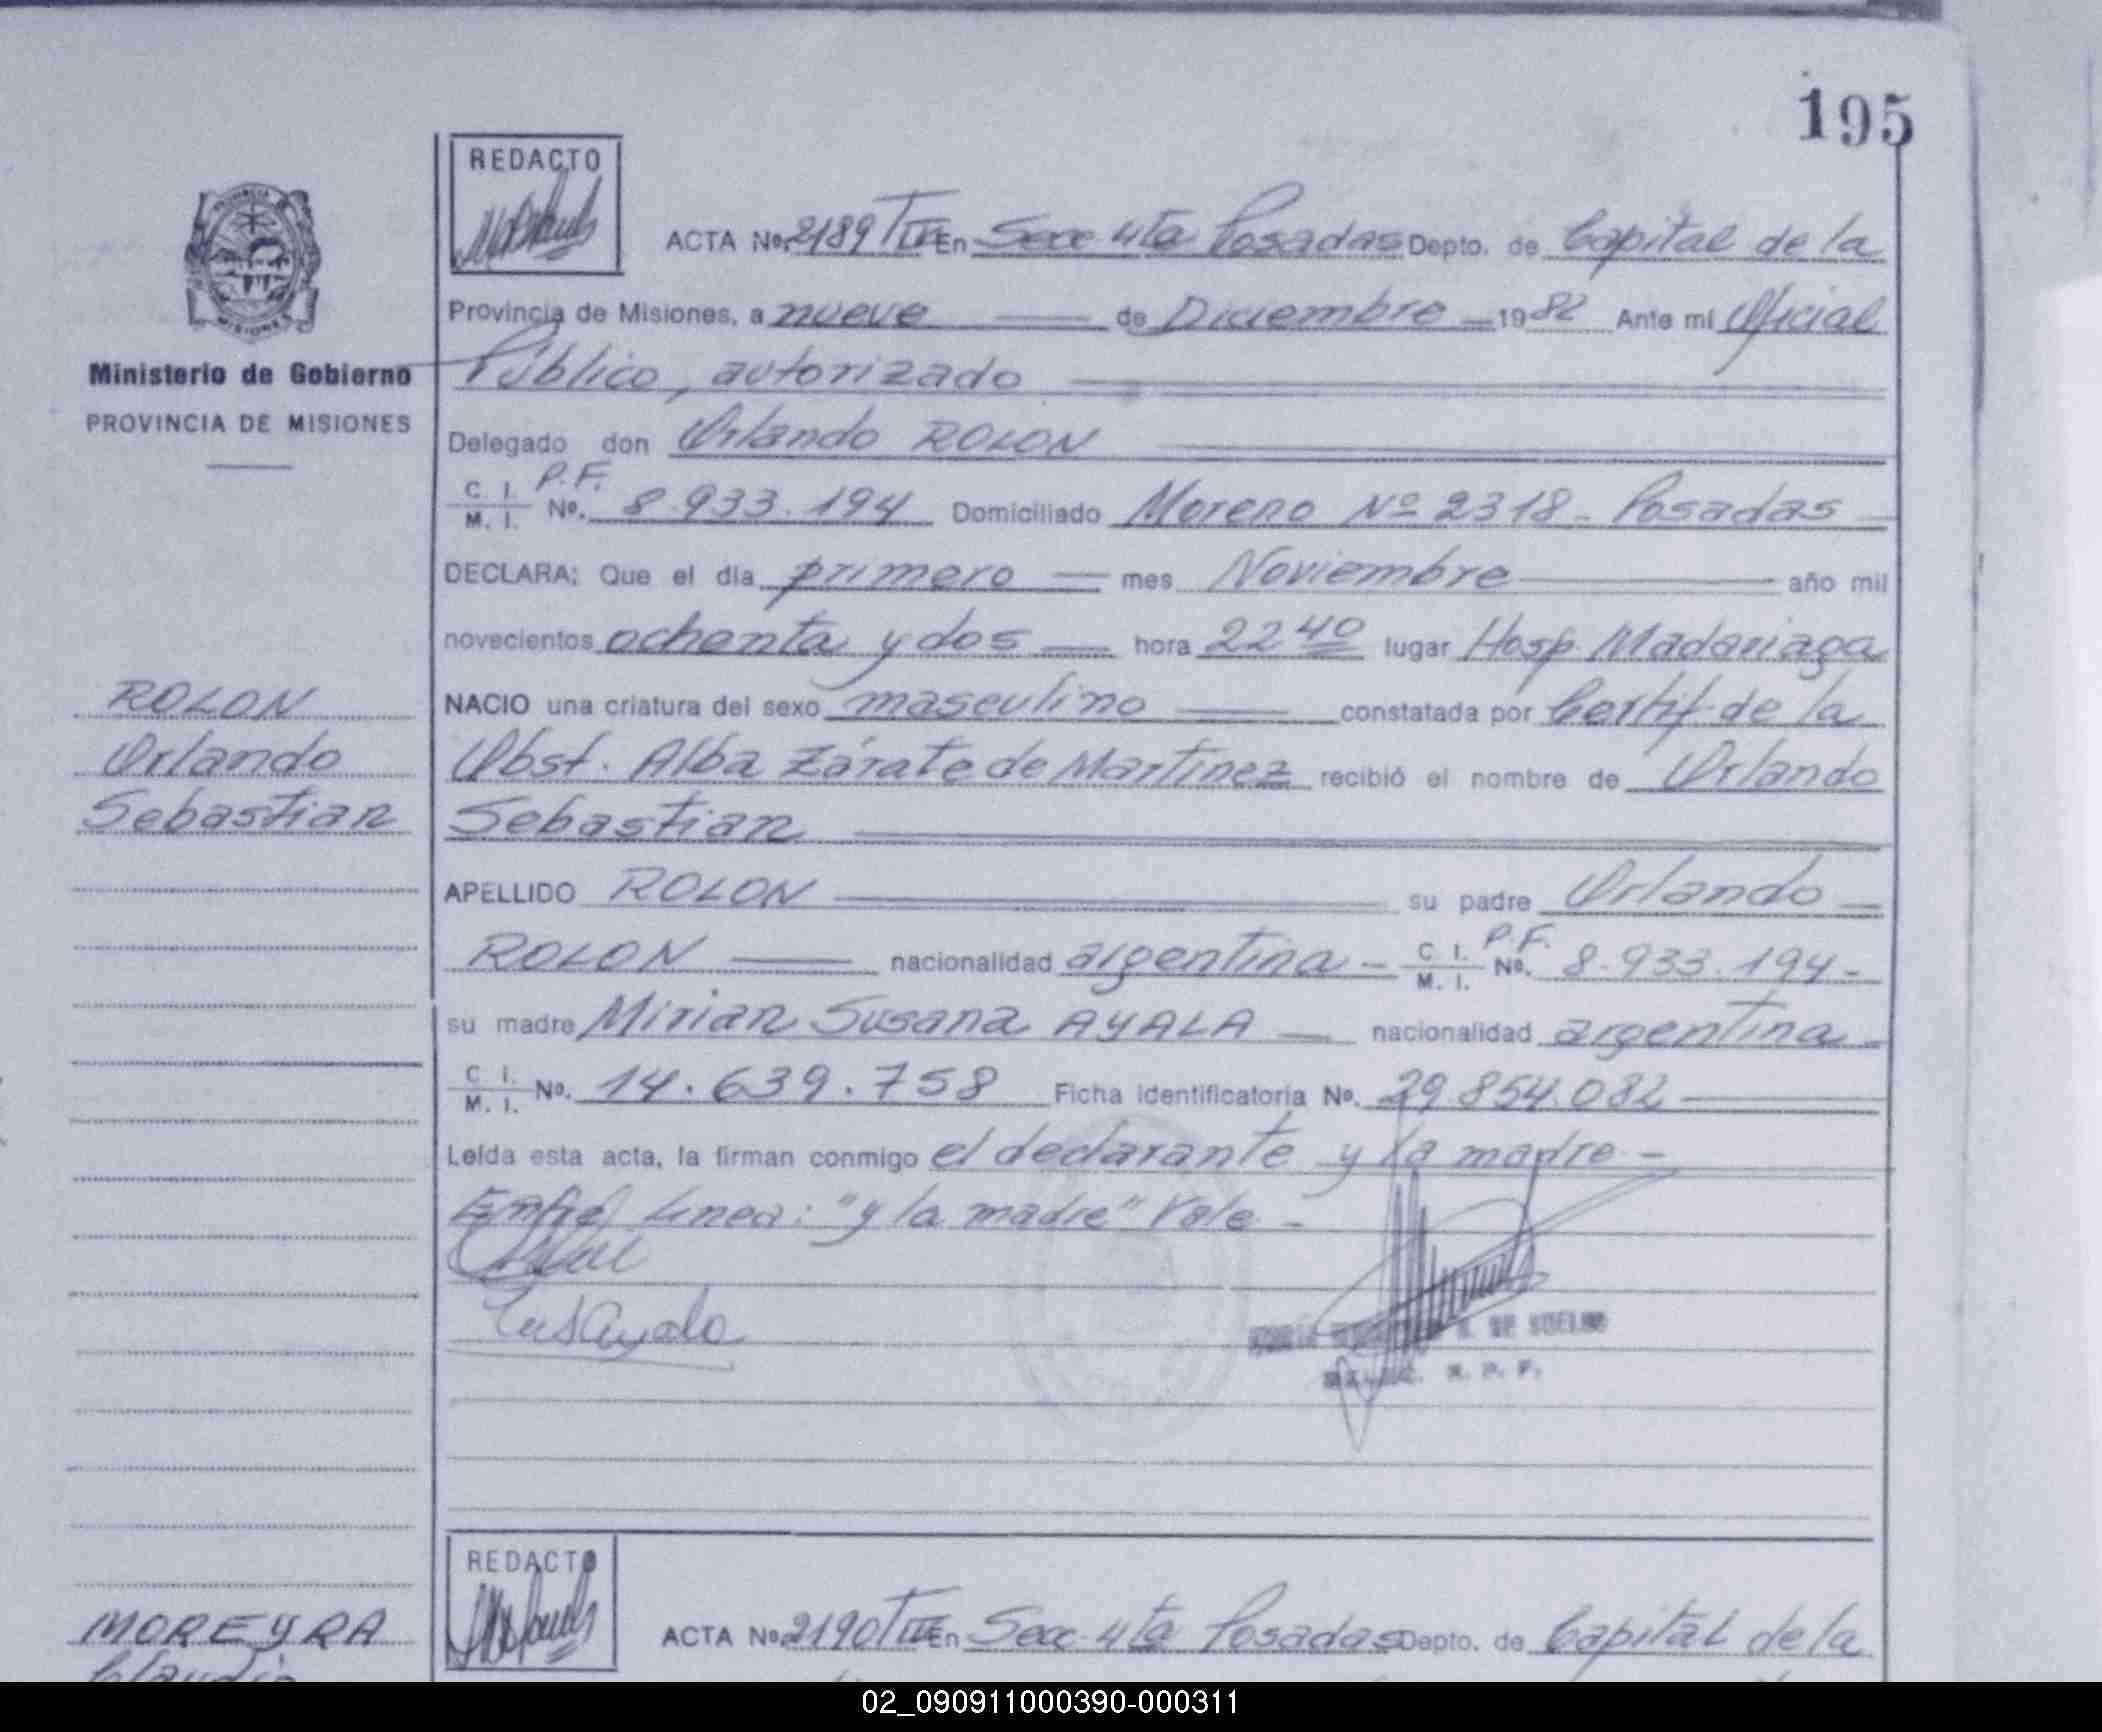 195
REDACTO
ACTA No. 2189 TIV En Secc 4ta Posadas Depto. de Capital de la
Provincia de Misiones, a nueve de Diciembre 1982 Ante mi Oficial
Ministerio de Gobierno
PROVINCIA DE MISIONES
Público, autorizado
Delegado don Orlando ROLON
C. I. M. I. P.F. No. 8.933.194 Domiciliado Moreno Nº 2318 - Posadas
DECLARA: Que el dia primero mes Noviembre año mil
novecientos ochenta y dos hora 22 40 lugar Hosp. Madariaga
ROLON
Orlando
Sebastian
NACIO una criatura del sexo masculino constatada por Certif. de la
Obst. Alba Zárate de Martinez recibió el nombre de Orlando
Sebastian
APELLIDO ROLON su padre Orlando
ROLON nacionalidad argentina - C. I. M. I. P.F. No. 8.933.194 -
su madre Mirian Susana AYALA nacionalidad argentina
C. I. M. I. No. 14.639.758 Ficha identificatoria No. 29.854.082
Leída esta acta, la firman conmigo el declarante y la madre -
línea: "y la madre" Vale -
DE
MISIONES
REDACTO
MOREYRA
Claudio
ACTA No. 2190 TIV En Secc 4ta Posadas Depto. de Capital de la
02_090911000390-000311